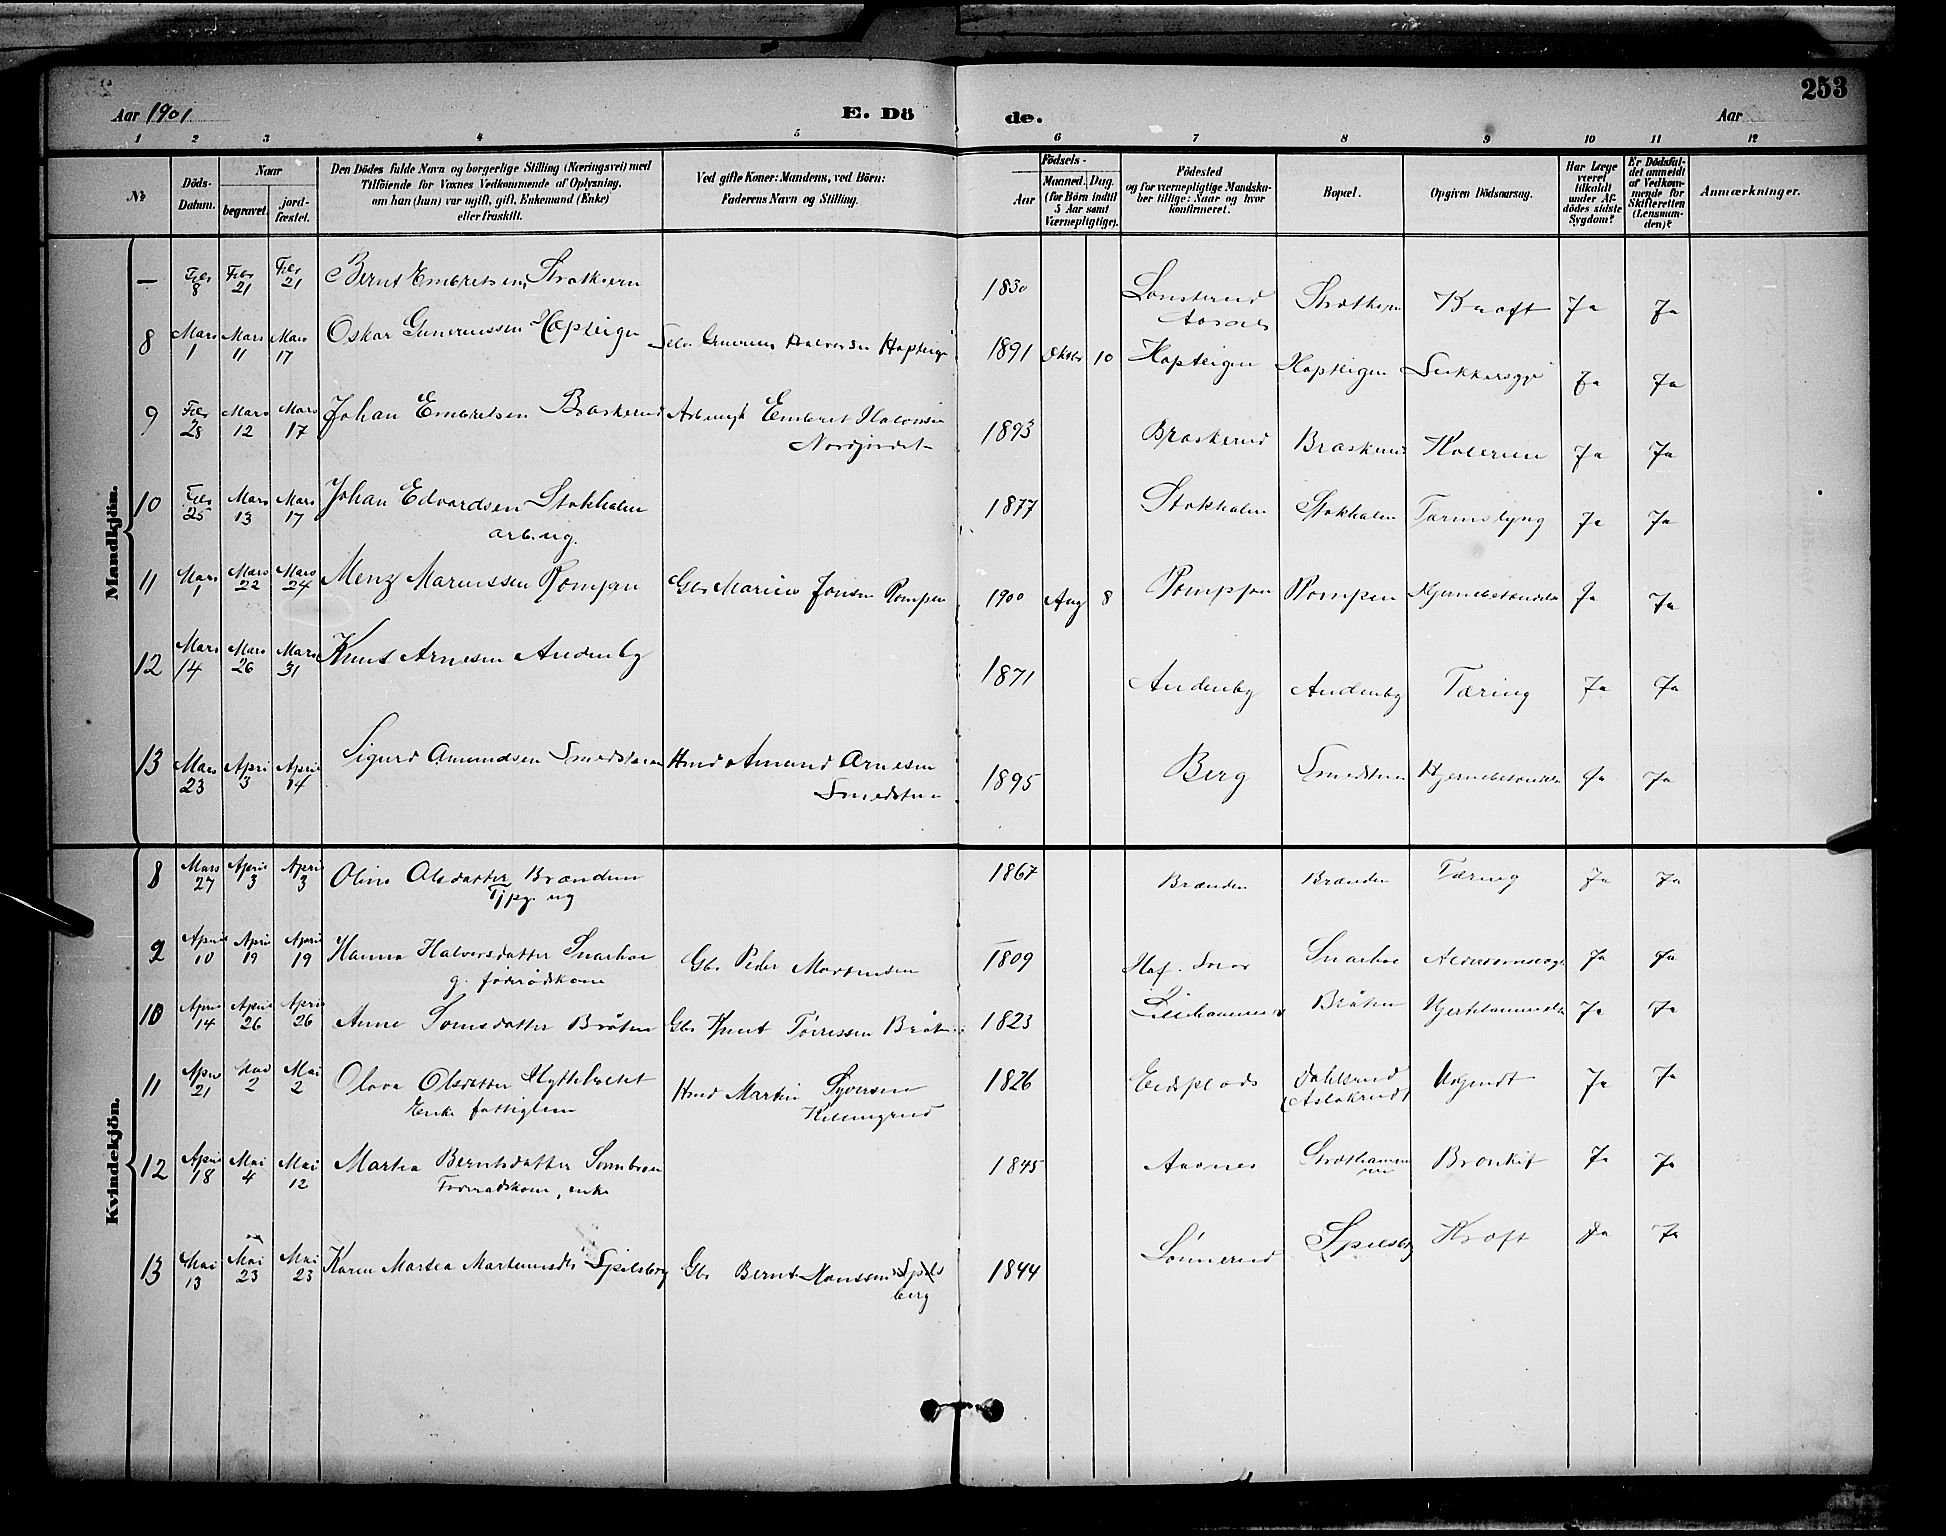 253
Aar 1901 E. Dö de. Aar
1 2 3 4 5 6 7 8 9 10 11 12
№
Döds-Datum.
Naar
begravet.
jordfæstet.
Den Dödes fulde Navn og borgerlige Stilling (Næringsvei) med
Tilföiende for Voxnes Vedkommende af Oplysning,
om han (hun) var ugift, gift, Enkemand (Enke)
eller fraskilt.
Ved gifte Koner: Mandens, ved Börn:
Faderens Navn og Stilling.
Födsels-
Aar
Maaned. Dag.
(for Börn indtil
5 Aar samt
Værnepligtige).
Födested
og for værnepligtige Mandska-
ber tillige: Naar og hvor
konfirmeret.
Bopæl.
Opgiven Dödsaarsag.
Har Læge
været
tilkaldt
under Af-
dödes sidste
Sygdom?
Er Dödsfal-
det anmeldt
af Vedkom-
mende for
Skifteretten
(Lensman-
den)?
Anmærkninger.
Mandkjön.
— Febr 8 Febr 21 Febr 21 Bernt Embretsen 1830 Aasnes Kræft Ja Ja
8 Mars 1 Mars 11 Mars 17 Oskar Gunerussen Hapteigen Selv. Gunerius Halvorsen Hapteigen 1891 Oktbr 10 Hapteigen Hapteigen Sukkersyge Ja Ja
9 Febr 28 Mars 12 Mars 17 Johan Embretsen Braskerud Embret Halvorsen
Nordjordet 1893 Braskerud Braskerud Ja Ja
10 Febr 25 Mars 13 Mars 17 Johan Edvardsen Stokholm
arb. ug. 1877 Stokholm Stokholm Tarmslyng Ja Ja
11 Mars 1 Mars 22 Mars 24 Menz Mariussen Rompen Gbr Marius Jonsen Rompen 1900 Aug 8 Rompen Rompen Hjernebetændelse Ja Ja
12 Mars 14 Mars 26 Mars 31 Knut Arnesen Audenby 1871 Audenby Audenby Tæring Ja Ja
13 Mars 23 April 3 April 14 Sigurd Amundsen Smedstuen Hmd Amund Arnesen
Smedstuen 1895 Berg Smedstuen Hjernebetændelse Ja Ja
Kvindekjön.
8 Mars 27 April 3 April 3 Oline Olsdatter Brænden
Tjpg. ug 1867 Brænden Brænden Tæring Ja Ja
9 April 10 April 19 April 19 Hanna Halvorsdatter Snarhoe
g. föderådskone Gbr Peder Mortensen 1809 Hof. Snarhoe Ja Ja
10 April 14 April 26 April 26 Anne Bråten Gbr Knut Bråten 1823 Bråten Ja Ja
11 April 21 Mai 2 Mai 2 Olava Olsdatter
Enke fattiglem Hmd Martin Syversen 1826 Eidsplads
(Aslakrud) Ja Ja
12 April 18 Mai 4 Mai 12 Martea Berntsdatter
Föderadskone, enke 1845 Aasnes Bronkit Ja Ja
13 Mai 13 Mai 23 Mai 23 Karen Martea Spilsberg Gbr Bernt Hanssen Spils
berg 1844 Sönnerud Spilsberg Kræft Ja Ja